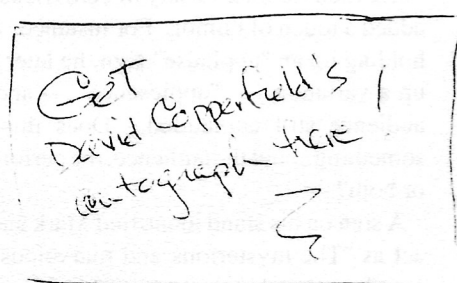 Get
David Copperfield's
autograph Here!